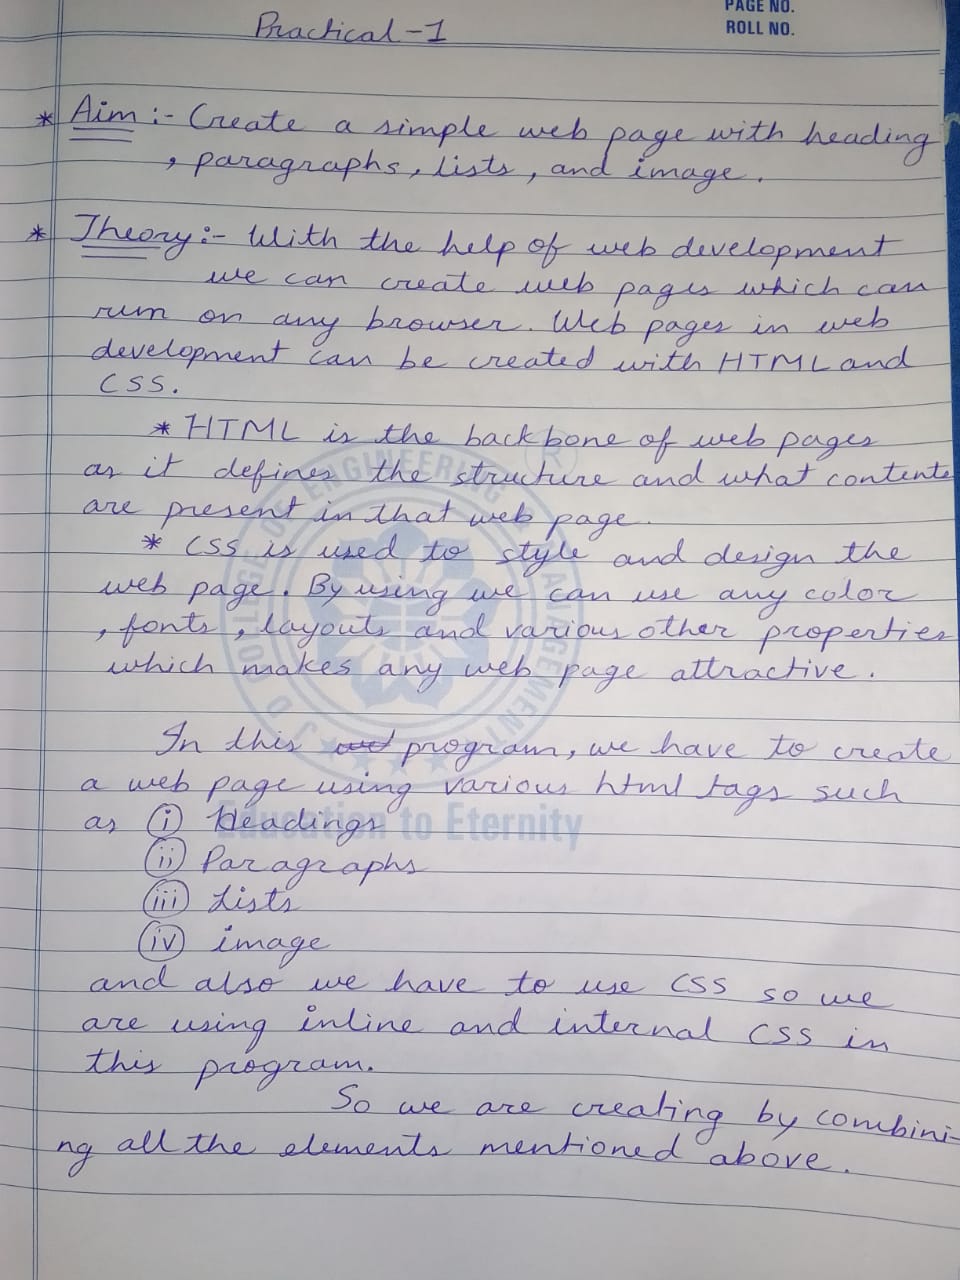 PAGE NO.
ROLL NO.
Practical-1
* Aim :- Create a simple web page with heading
, paragraphs, lists, and image.
* Theory:- With the help of web development
we can create web pages which can
run on any browser. Web pages in web
development can be created with HTML and
CSS.
* HTML is the backbone of web pages
as it defines the structure and what contents
are present in that web page.
* CSS is used to style and design the
web page. By using we can use any color
, fonts, layouts and various other properties
which makes any web page attractive.
In this program, we have to create
a web page using various html tags such
as (i) Headings
(ii) Paragraphs
(iii) Lists
(iv) image
and also we have to use CSS so we
are using inline and internal CSS in
this program.
So we are creating by combini-
ng all the elements mentioned above.
J D COLLEGE OF ENGINEERING & MANAGEMENT
Education to Eternity